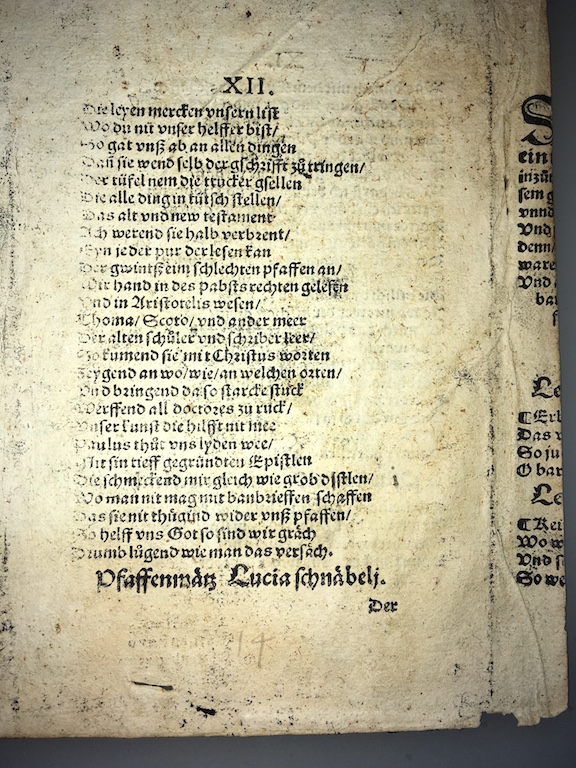 XII.
Die leyen mercken vnsern list
Wo du nit vnser helffer bist/
So gat vnß ab an allen dingen
Dañ sie wend selb der gschrifft zů tringen/
Der tüfel nem die trucker gsellen
Die alle ding in tütsch stellen/
Das alt vnd new testament
Ach werend sie halb verbrent/
Eyn jeder pur der lesen kan
Der gwintß eim schlechten pfaffen an/
Wir hand in des pabsts rechten gelesen
Vnd in Aristotelis wesen/
Thoma/ Scoto/ vnd ander meer
Der alten schůler vnd schriber leer/
So kumend sie mit Christus worten
Zeygend an wo/ wie/ an welchen orten/
Vnd bringend da so starcke stuck
Werffend all doctores zu ruck/
Vnser kunst die hilfft nit mee
Paulus thůt vns lyden wee/
Mit sin tieff gegründten Epistlen
Die schmeckend mir gleich wie grob distlen/
Wo man nit mag mit banbrieffen schaffen
Das sie nit thügind wider vnß pfaffen/
So helff vns Got so sind wir gräch
Drumb lůgend wie man das versäch.
Pfaffenmätz Lucia schnäbelj.
Der
14
ein
sem
vnnd
Vnd
denn
ware
Vnd
ba
Le
Das
So ju
O bar
Le
Wo
Vnd
So we